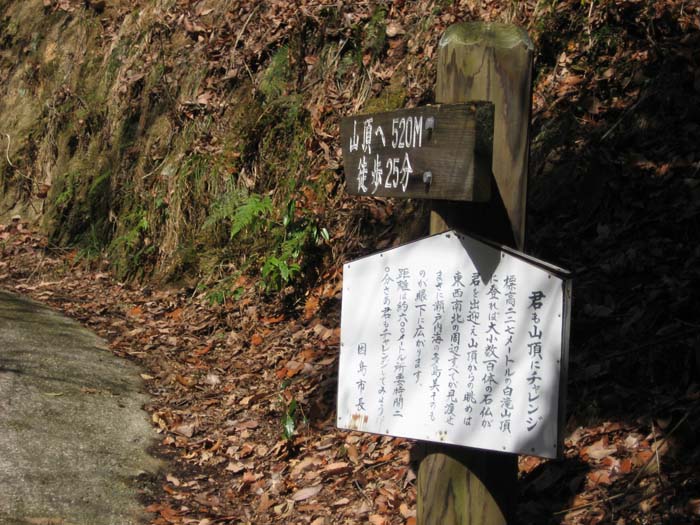 山頂へ 520M
徒歩25分
君も山頂にチャレンジ
標高二二七メートルの白滝山頂
に登れば大小数百体の石仏が
君を出迎え山頂からの眺めは
東西南北の周辺すべてが見渡せ
まさに瀬戸内海の多島美そのも
のが眼下に広がります。
距離は約六〇〇メートル所要時間二
〇分さあ君もチャレンジしてみよう！
因島市長